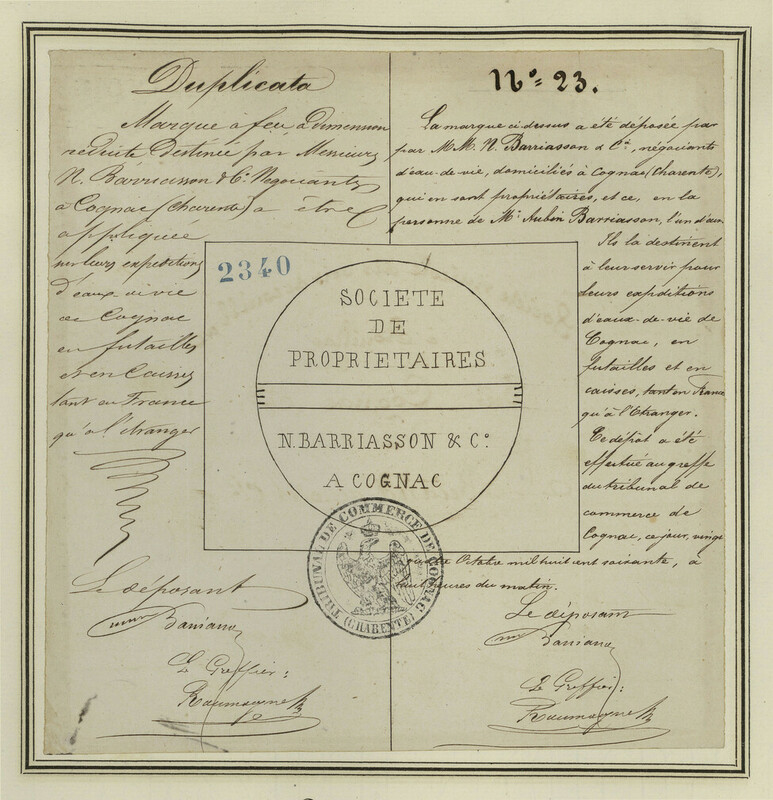 Duplicata
Marque à feu, à dimension
réduite destinée par Messieurs
N. Barriasson & Cie Negociants
à Cognac (Charente) a être
appliquée
sur leurs expeditions
d'eaux de vie
de Cognac
en futailles
et en Caisses
tant en France
qu'à l'etranger
Le déposant
Le Greffier:
No. 23.
La marque ci-dessus a été déposée par
par MM. N. Barriasson & Cie, négociants
d'eau-de-vie, domiciliés à Cognac (Charente),
qui en sont propriétaires, et ce, en la
personne de Mr. Aubin Barriasson, l'un d'eux
Ils la destinent
à leur servir pour
leurs expéditions
d'eaux-de-vie de
Cognac, en
futailles et en
caisses, tant en France
qu'à l'Etranger.
Ce dépot a été
effectué au greffe
du tribunal de
commerce de
Cognac, ce jour, vingt
Octobre mil huit cent soixante, à
heures du matin.
Le déposant
Le Greffier:
2340
SOCIETE
DE
PROPRIETAIRES
N. BARRIASSON & Co.
A COGNAC
TRIBUNAL DE COMMERCE DE COGNAC
(CHARENTE)